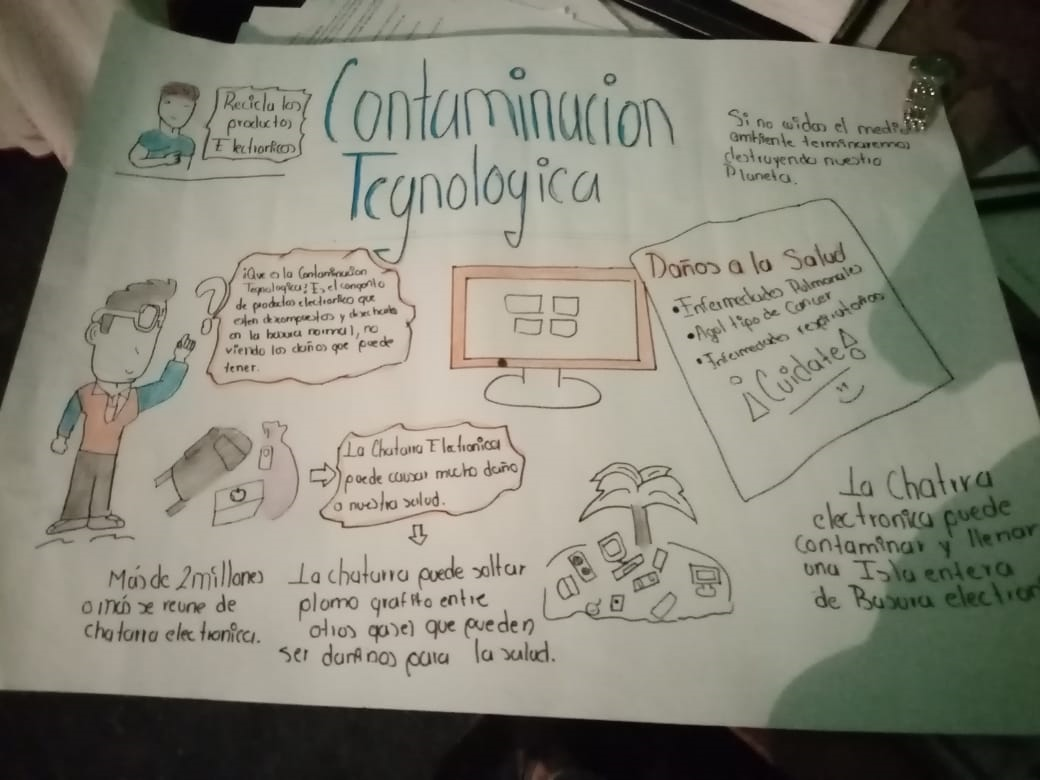 Contaminacion
Tegnologica
Recicla los
productos
Electrorlicos
Si no widas el medio
ambiente terminaremos
destruyendo nuestro
Planeta.
¡Que es la Contaminacion
Tegnologica? Es el congonto
de productos electrorlico que
esten descompuestos y desechado
en la basura normal, no
viendo los daños que puede
tener.
Daños a la Salud
• Enfermedades Pulmonales
• Agul tipo de Cancer
• Infermedades respiratorios
¡Cuidate!
La Chatarra Electronica
puede causar mucho daño
a nuestra salud.
Más de 2 millones
o más se reune de
chatarra electronica.
La chatarra puede soltar
plomo grafito entre
otros gases que pueden
ser dañinos para la salud.
La Chatrra
electronica puede
contaminar y llenar
una Isla entera
de Basura electron